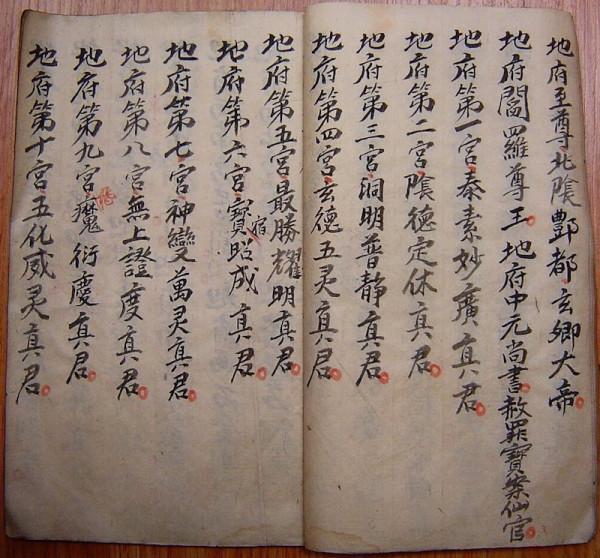 地府至尊北陰酆都玄卿大帝
地府閻羅尊王地府中元尚書赦罪寶案仙官
地府第一宮泰素妙廣真君
地府第二宮陰德定休真君
地府第三宮洞明普静真君
地府第四宮玄德五灵真君
地府第五宮最勝耀明真君
地府第六宮寶宿昭成真君
地府第七宮神變萬灵真君
地府第八宮無上證度真君
地府第九宮魔衍慶真君
地府第十宮五化威灵真君